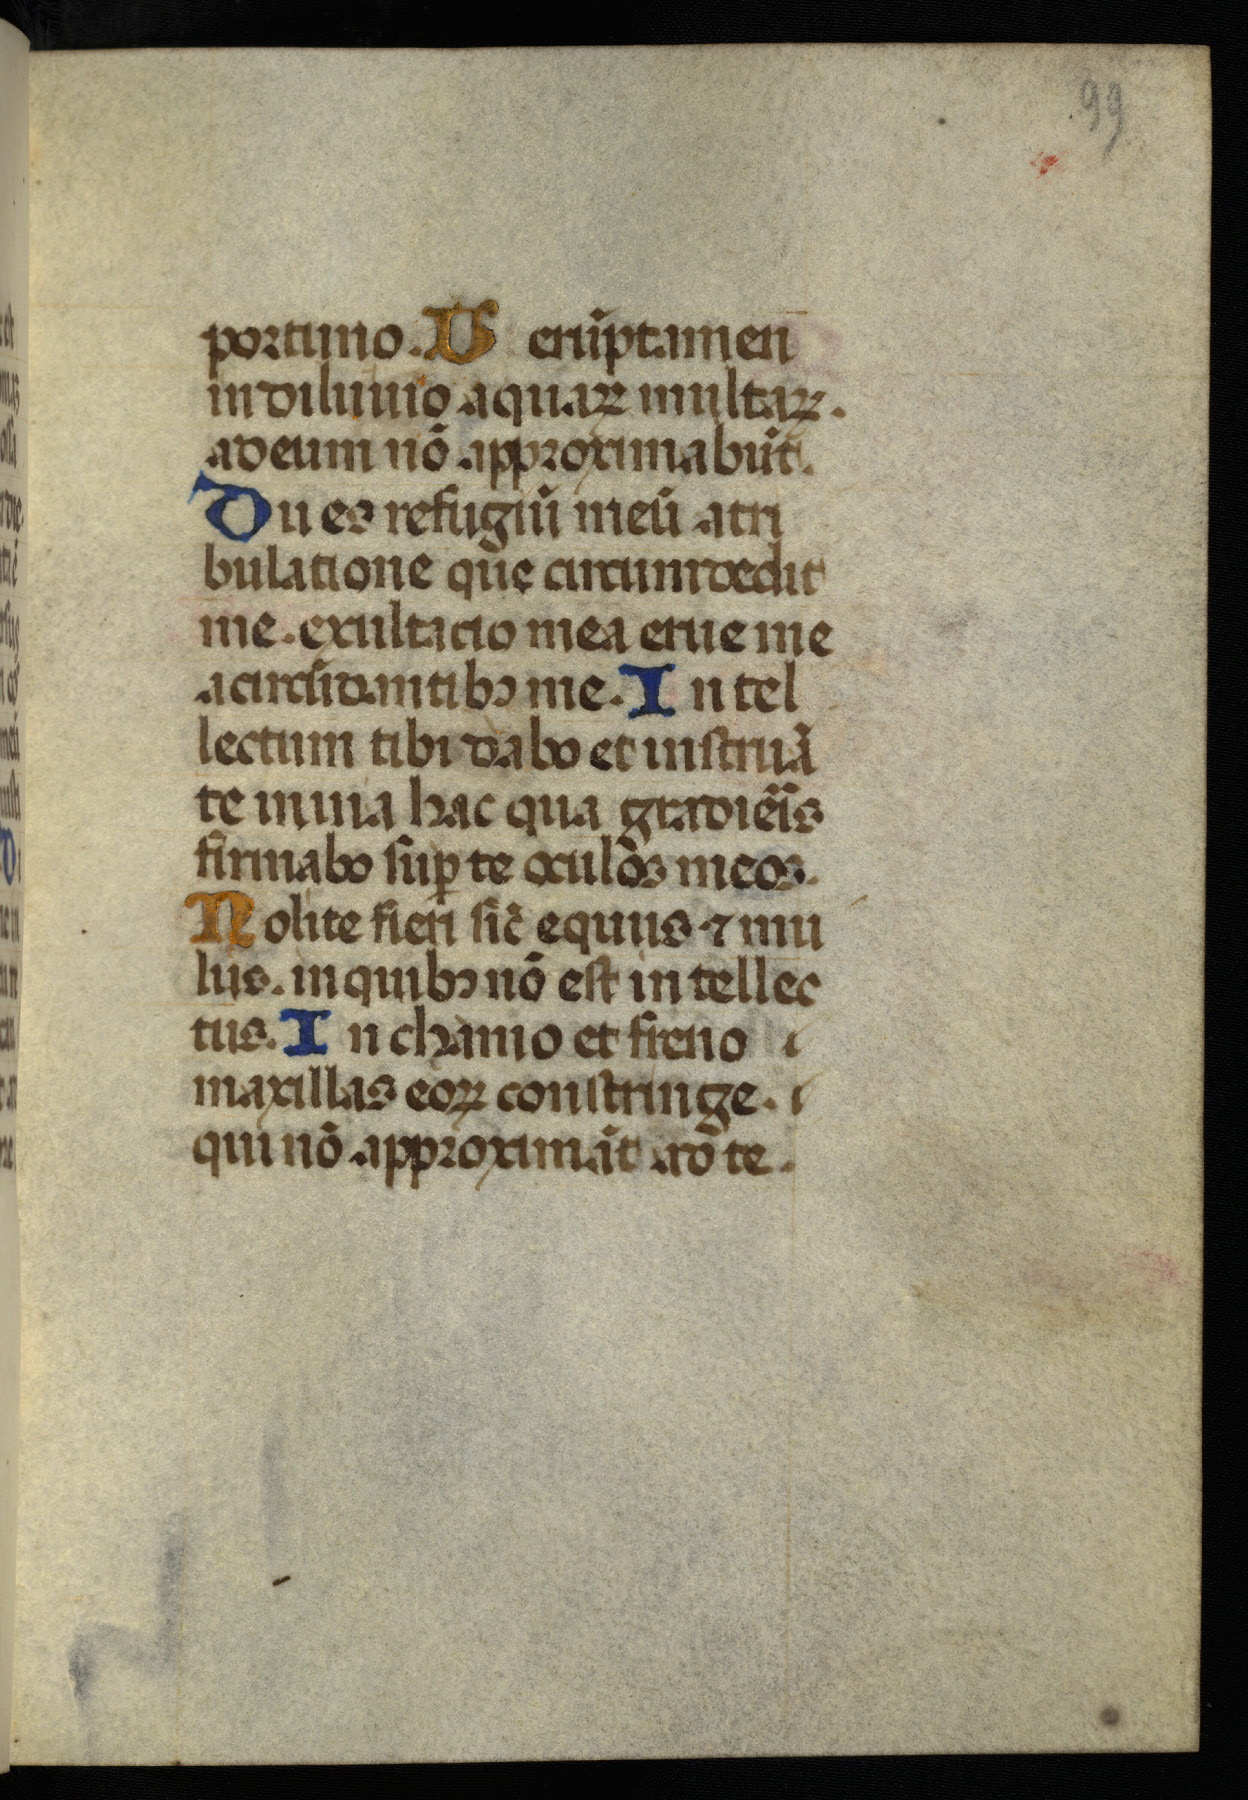 99
portuno. U erũptamen
in diluuio aquaꝝ multaꝝ.
ad eum nõ approximabũt.
Du es refugiũ meũ a tri
bulatione que circumdedit
me. exultacio mea erue me
a circũdantibꝰ me. In tel
lectum tibi dabo et instruã
te in uia hac qua gradiẽis
firmabo suꝑ te oculõs meos.
Nolite fieri sic̃ equus ⁊ mu
lus. in quibꝰ nõ est intellec
tus. In chamo et freno
maxillas eoꝝ constringe.
qui nõ approximãt ad te.